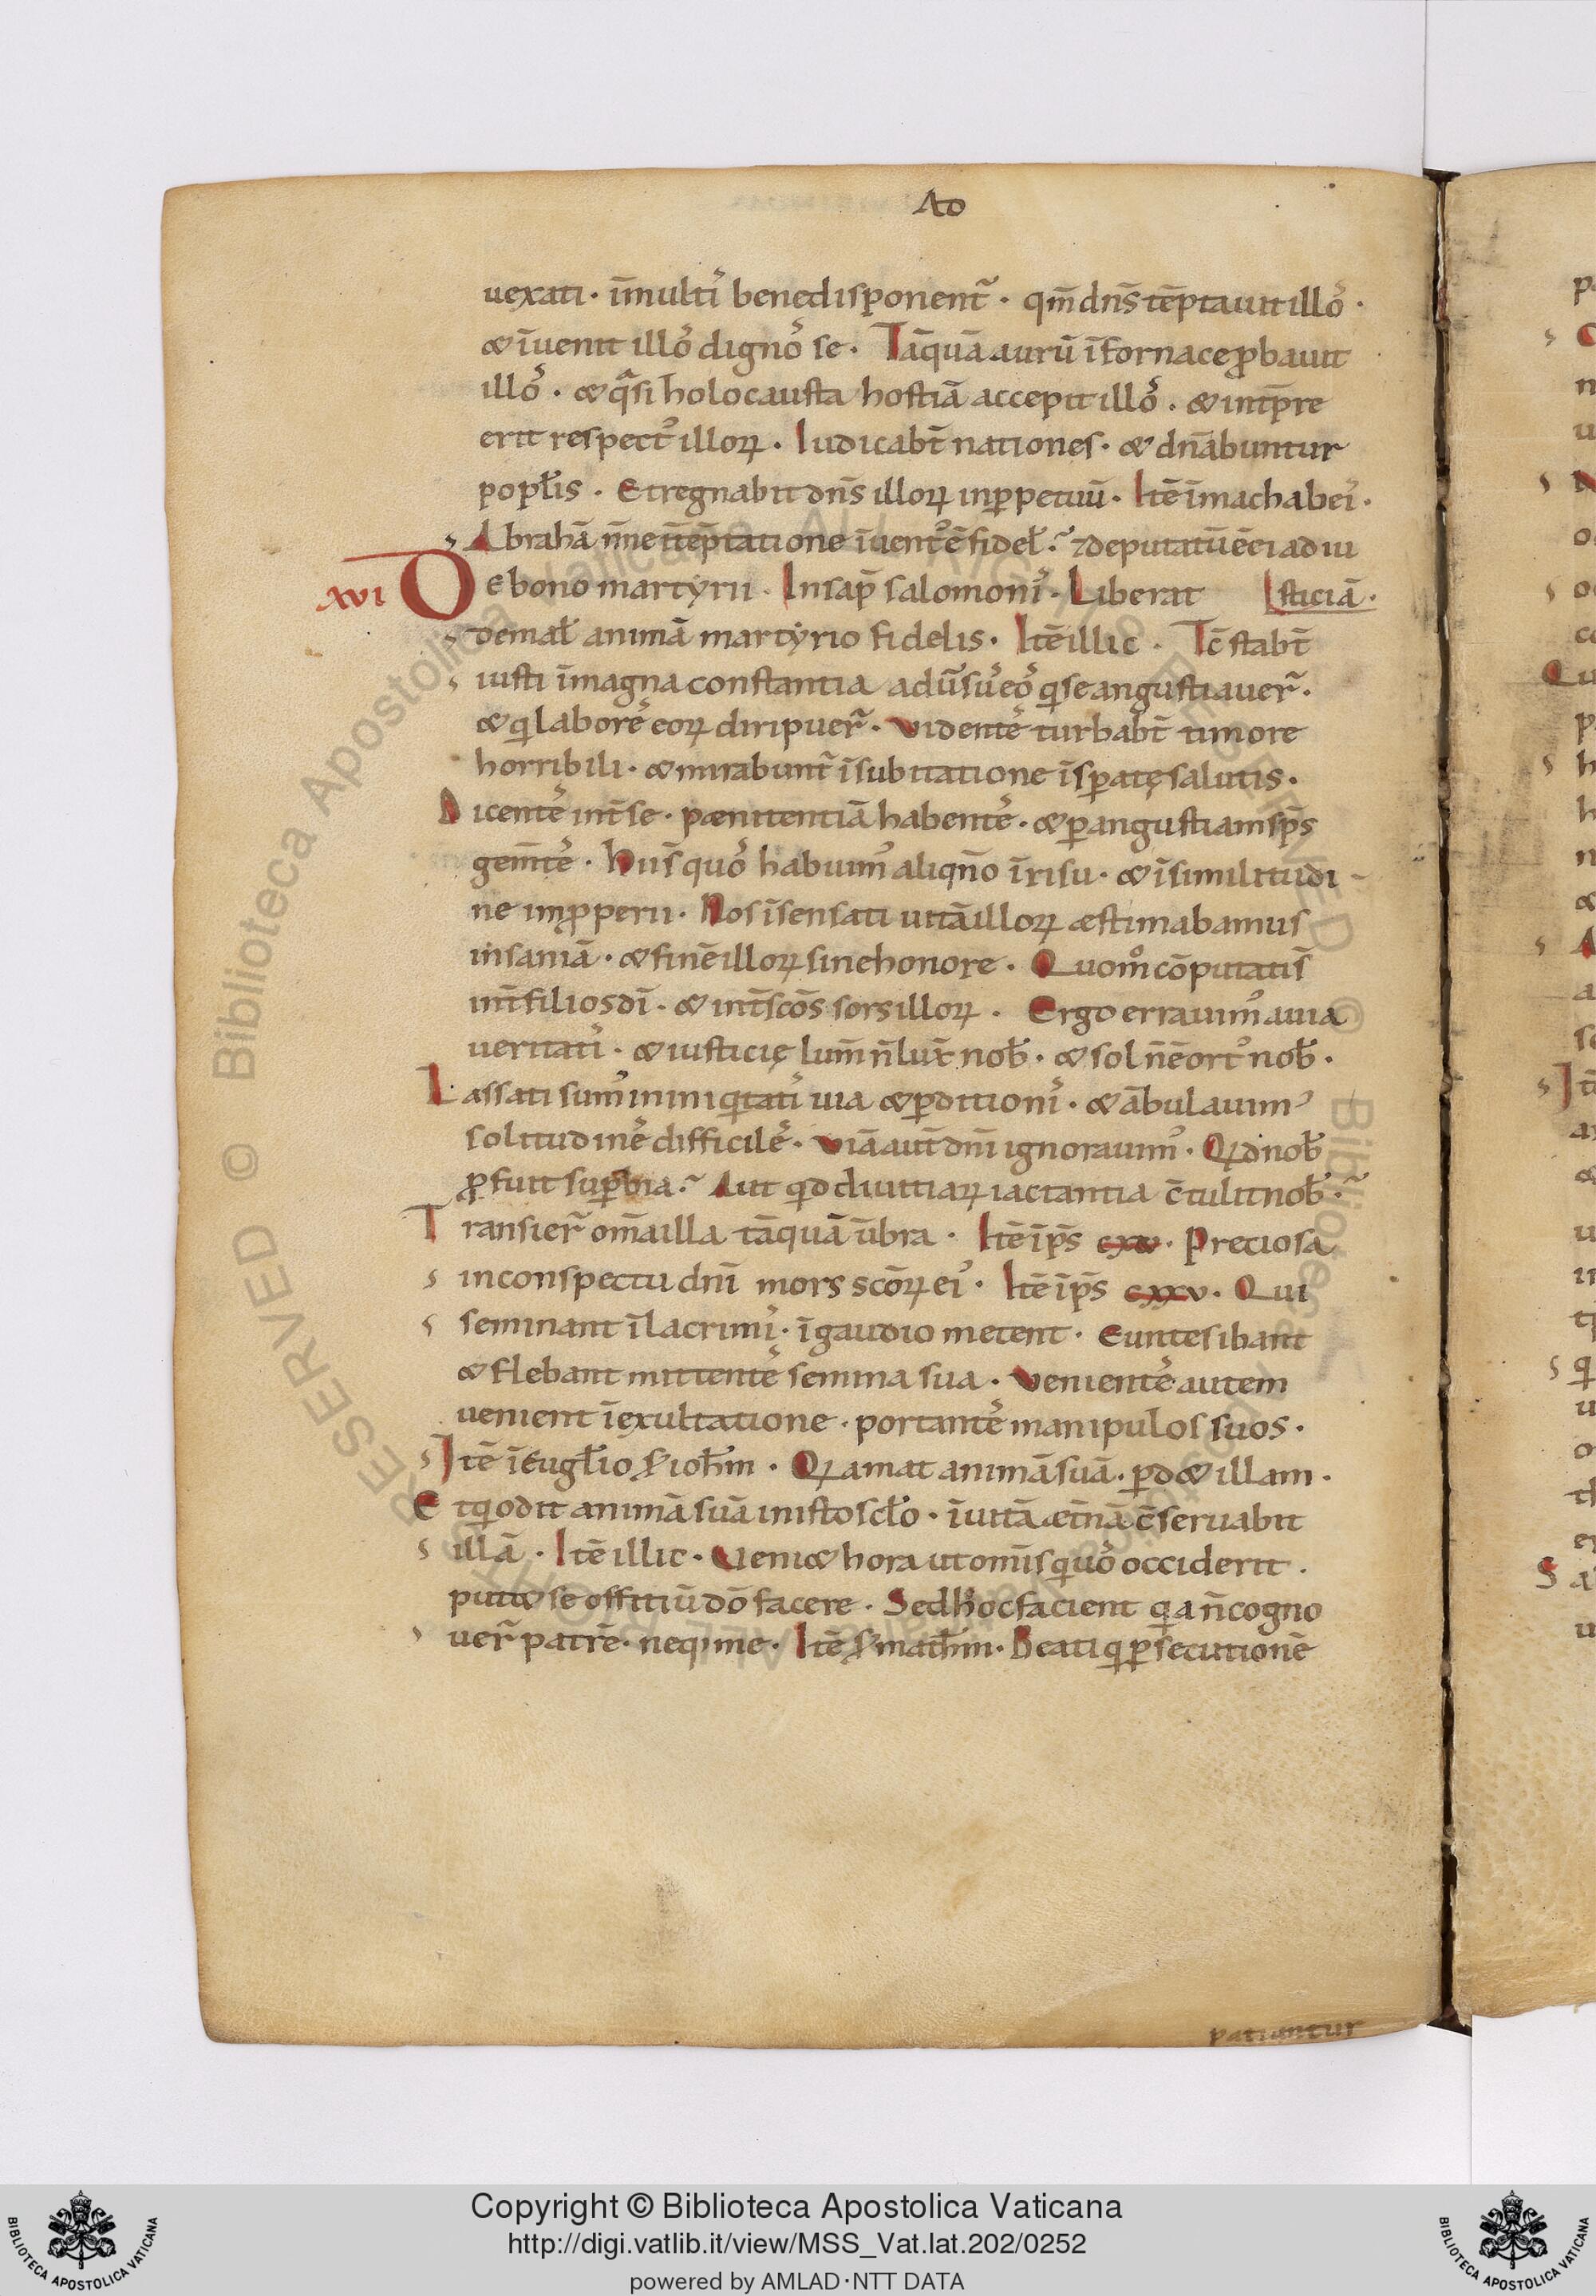 AD
uexati · ī multi᾽ bene disponent̃ · qm̄ dn̄s tēptauit illo᾽ ·
& īuenit illo᾽ digno᾽ se · Tāquā aurū ī fornace ꝓbauit
illo᾽ · & qͣsi holocausta hostiā accepit illo᾽ · & in tp̄re
erit respect᾽ illoꝝ · Iudicabt̄ nationes · & dn̄abuntur
popl̄is · Et regnabit dn̄s illoꝝ in ꝑpetuū · Itē ī machabei᾽ ·
Abrahā n̄ne ī tēptatione īuent᾽ ē fidel᾽ ? ⁊ deputatū ē ei ad iu
sticiā ·
XVI De bono martyrii · In sap̄ salomoni᾽ · Liberat
de mal᾽ animā martyrio fidelis · Itē illic · Tc̄ stabt̄
iusti ī magna constantia adū᾽sū eo᾽ qͥ se angustiauer̃ ·
& qͥ labore᾽ eoꝝ diripuer̃ · Uidente᾽ turbabt̄ timore
horribili · & mirabunt̃ ī subitatione īsꝑatę salutis ·
Dicente᾽ int̄ se · pænitentiā habente᾽ · & ꝑ angustiam sp̄s
gem̄te᾽ · Hii s̄ quo᾽ habuim᾽ aliqn̄o ī risu · & ī similitudi-
ne imꝓperii · Nos īsensati uitā illoꝝ æstimabamus
insaniā · & finē illoꝝ sine honore · Quomͦ cōputati s̄
int̄ filios dī · & int̄ scōs sors illoꝝ · Ergo errauim᾽ a uia
ueritati᾽ · & iusticię lum̄ n̄ lux̄ nob᾽ · & sol n̄ ē ort᾽ nob᾽ ·
Lassati sum᾽ in iniqͥtati᾽ uia & ꝑditioni᾽ · & ābulauim᾽
solitudine᾽ difficile᾽ · Uiā aut̄ dn̄i ignorauim᾽ · Qͥd nob᾽
ꝓfuit suꝑbia ? Aut qͥd diuitiaꝝ iactantia c̄tulit nob᾽ ?
Transier̃ om̄a illa tāquā ūbra · Itē ī ps̄ cxv · Preciosa
in conspectu dn̄i mors scōꝝ ei᾽ · Itē ī ps̄ cxxv · Qui
seminant ī lacrimi᾽ · ī gaudio metent · Euntes ibant
& flebant mittente᾽ semina sua · Ueniente᾽ autem
uenient ī exultatione · portante᾽ manipulos suos ·
Itē ī eugl̄io s̄ ioh̄m · Qͥ amat animā suā · ꝑd& illam ·
Et qͥ odit animā suā in isto scl̄o · ī uitā æt̄nā c̄seruabit
illā · Itē illic · Ueni& hora ut om̄is qͥ uo᾽ occiderit ·
put& se offitiū dō facere · Sed h᾽oc facient qͥa n̄ cogno
uer̃ patrē · neqͥ me · Itē s̄ math̄m · Beati qͥ ꝑsecutionē
patiantur
Copyright © Biblioteca Apostolica Vaticana
http://digi.vatlib.it/view/MSS_Vat.lat.202/0252
powered by AMLAD·NTT DATA
BIBLIOTECA APOSTOLICA VATICANA
BIBLIOTECA APOSTOLICA VATICANA